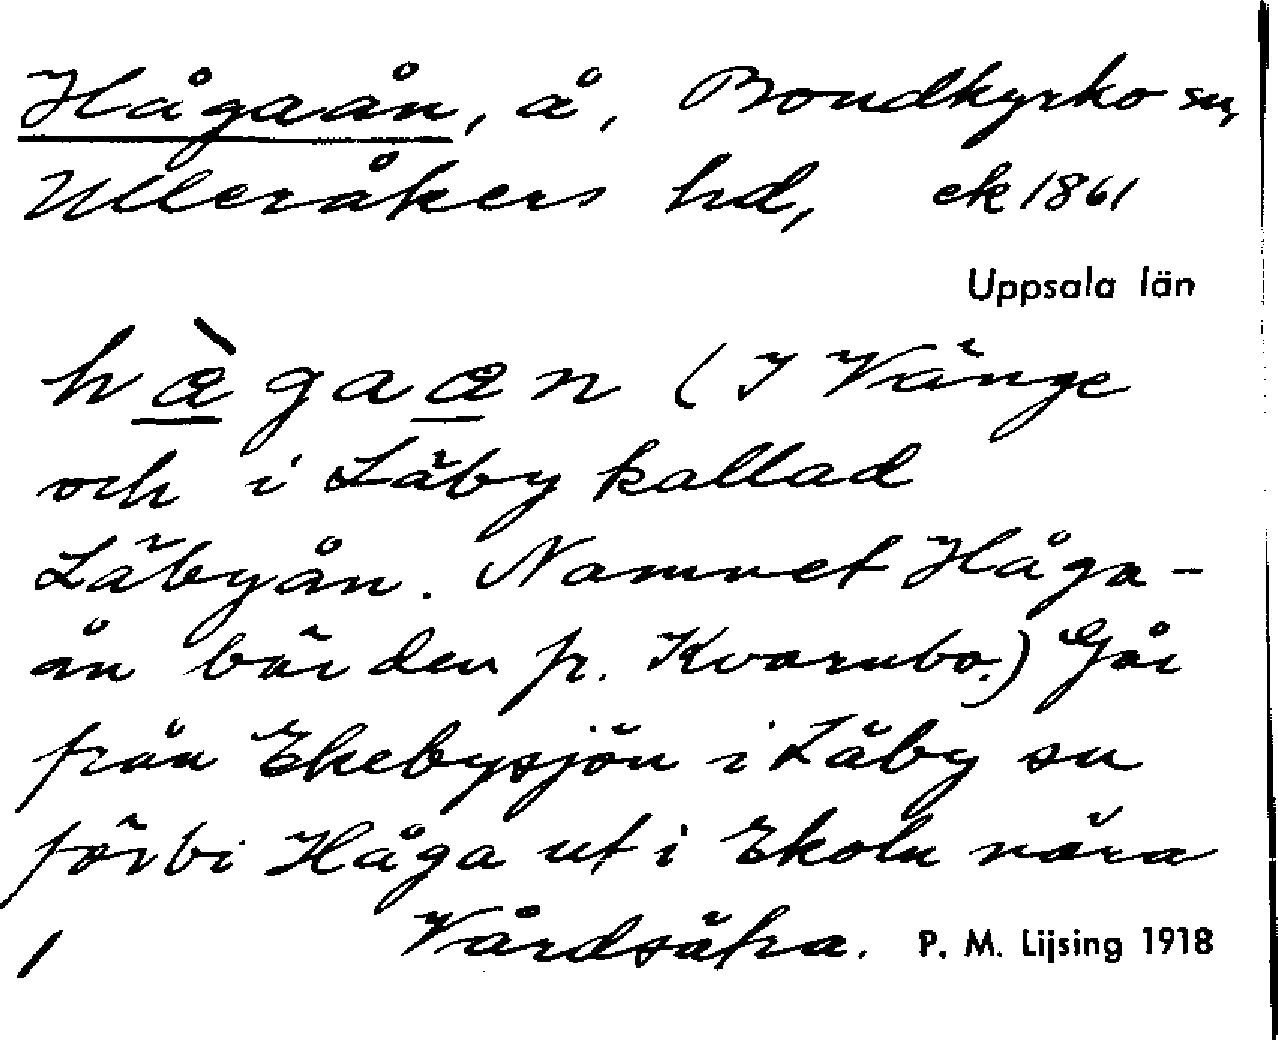 Hågaån, å, Bondkyrko sn,
Ulleråkers hd, ek 1861
Uppsala län
hàgaan (I Vänge
och i Läby kallad
Läbyån. Namnet Håga-
ån bär den fr. Kvarnbo.) Går
från Ekebysjön i Läby sn
förbi Håga ut i Ekoln nära
1 Vårdsätra. P. M. Lijsing 1918